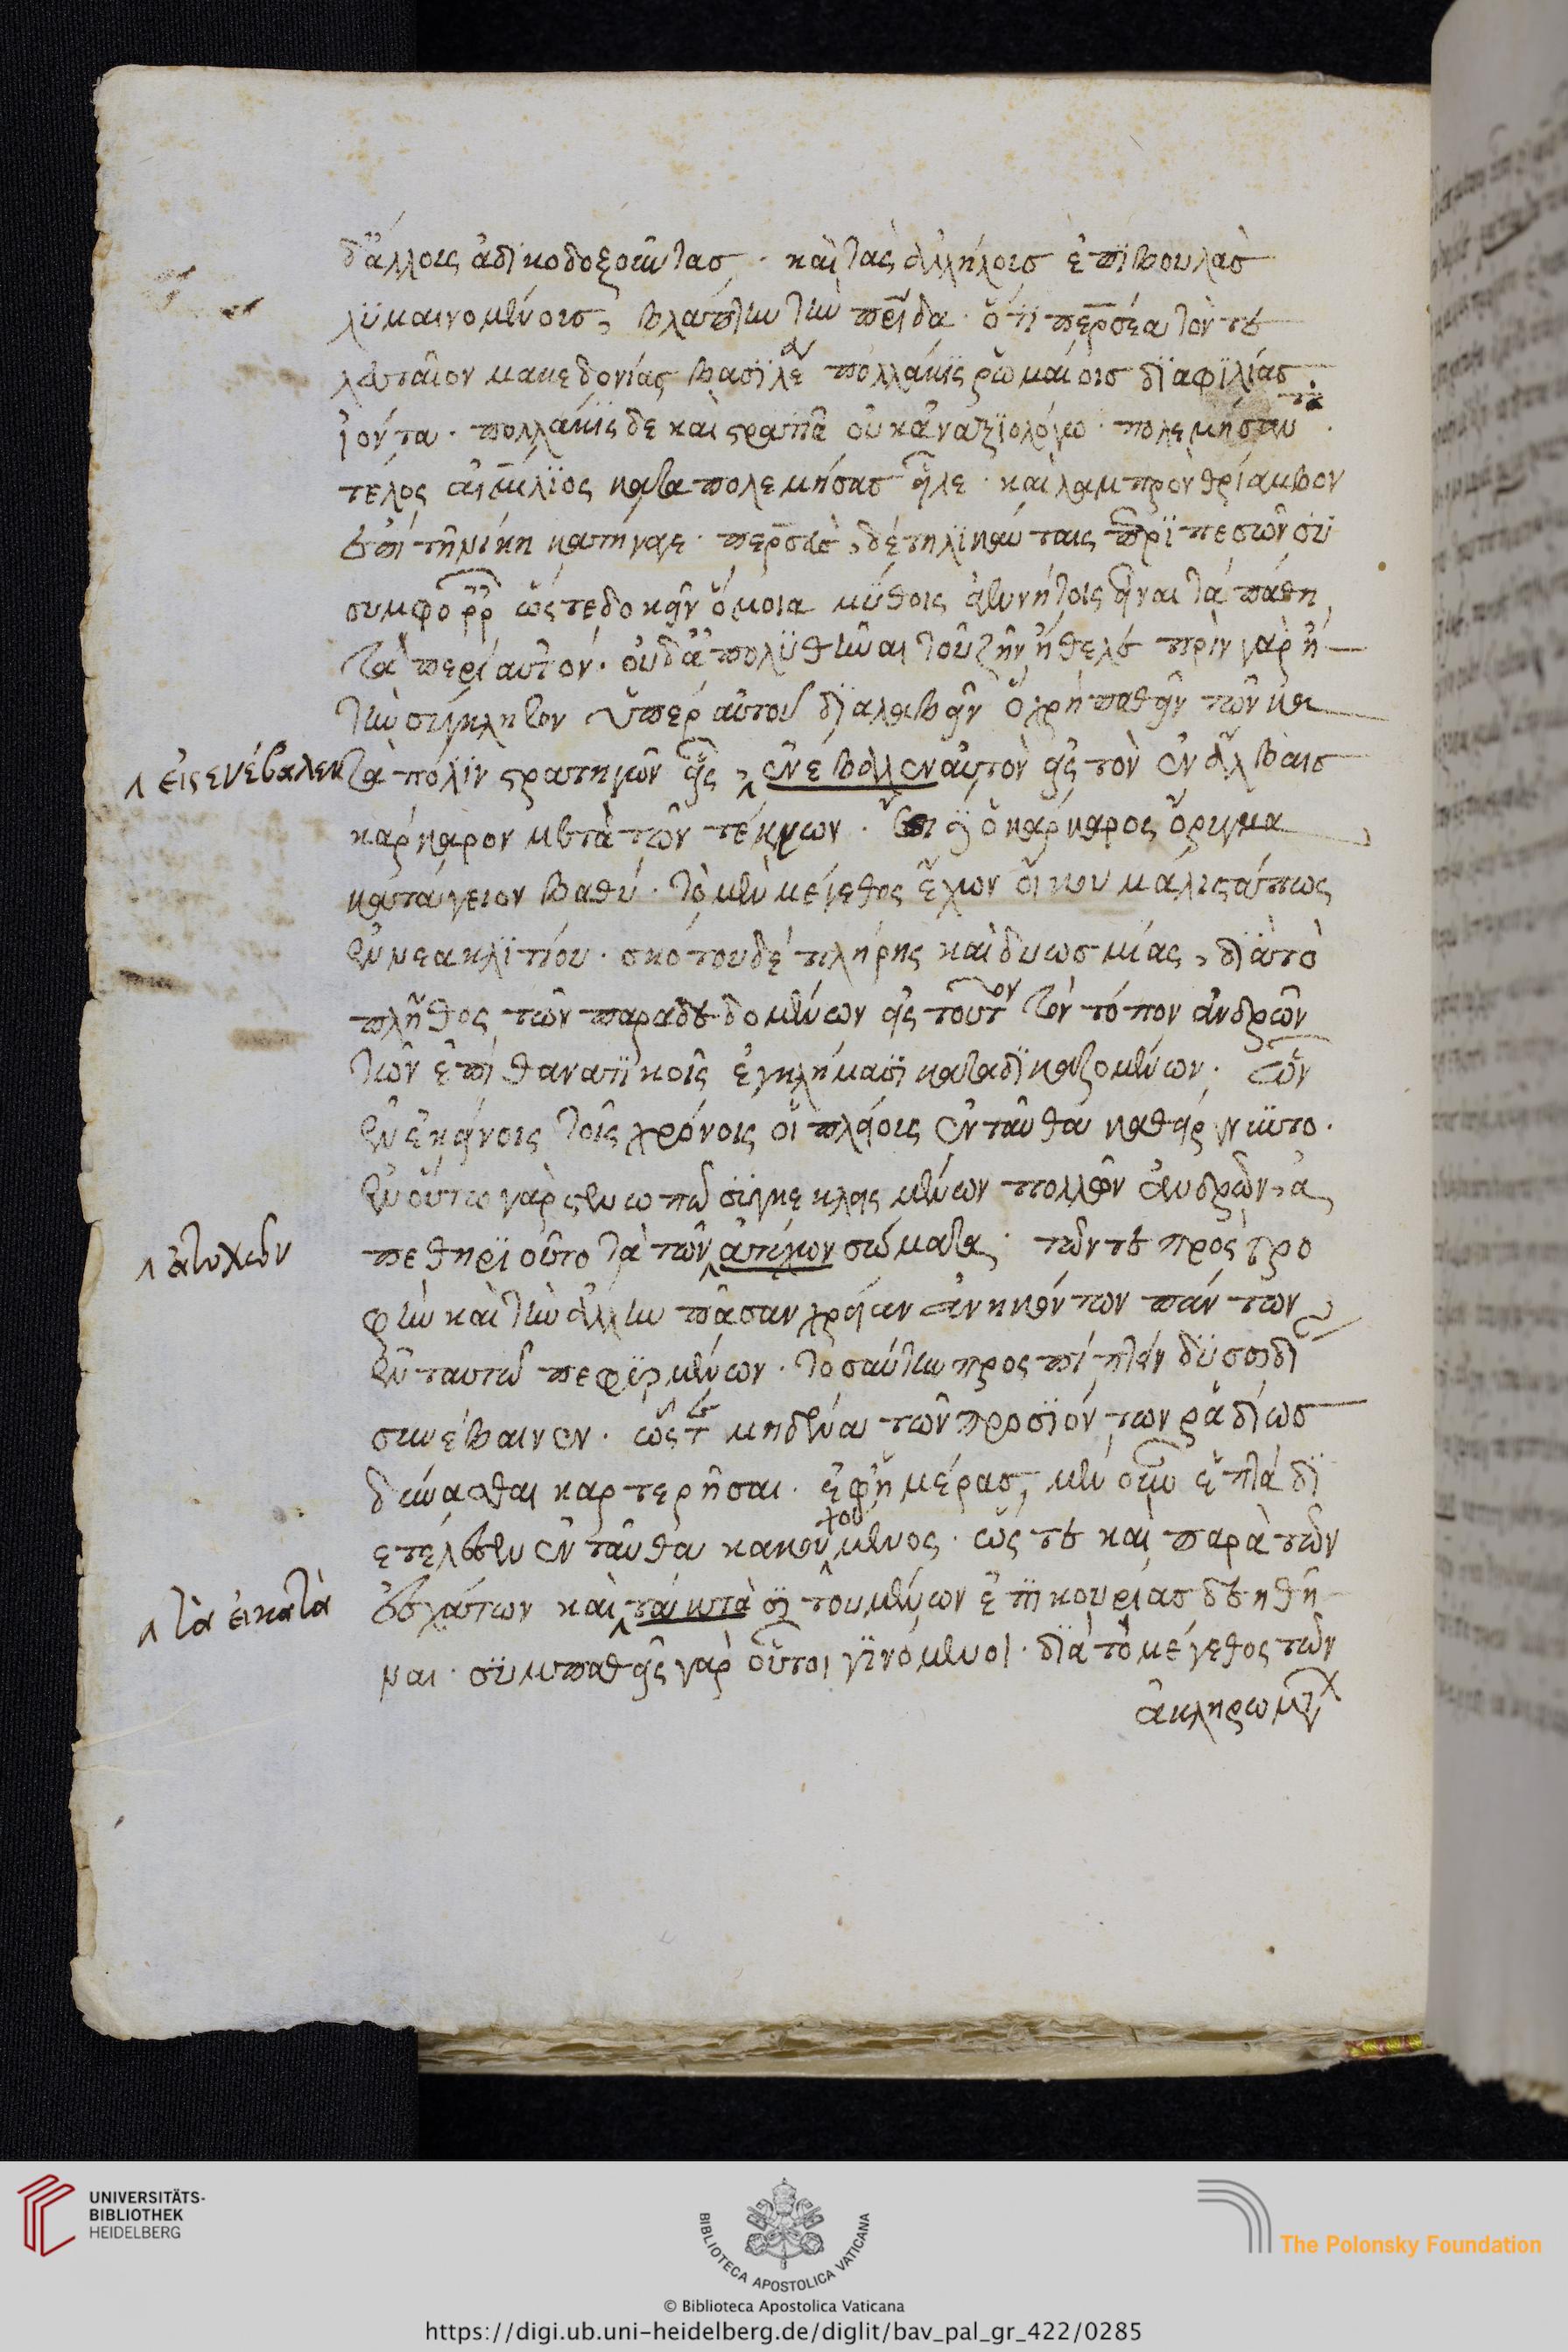 δ' ἄλλοις ἀδικοδοξοῦντας · καὶ τὰς ἀλλήλοις ἐπιβουλὰς
λϋμαινομένοις, βλάπτειν τὴν πρίδα · ὅτι περσέα τόν τε
λευταῖον μακεδονίας βασιλέα πολλάκις ῥωμαίοις διὰ φιλίας
ἰόντα · πολλάκις δε καὶ στρατιᾶ οὐκ ἀναξϊολόγω · πολεμήσαντα
τέλος αἰμίλϊος καταπολεμήσας εἷλε · καὶ λαμπρὸν θρίαμβον
ἐπὶ τῆ νίκη κατήγαγε · περσεὺς, δὲ τηλϊκαύταις περιπεσὼν
συμφορ ὥστε δοκεῖν ὅμοια μύθοις ἀγενήτοις εἶναι τὰ πάθη
τὰ περὶ αὐτόν · οὐδ' ἀπολϋθῆναι τοῦ ζῆν ἤθελε πρὶν γὰρ ἢ
τὴν σύγκλητον ὑπὲρ αὐτοῦ διαλαβεῖν ὃ χρὴ παθεῖν τῶν κα
τὰ πόλιν στρατηγῶν εἷς, ἐνέβαλλεν αὐτὸν εἰς τὸν ἐν ἄλβαις
^ εἷς ἐνέβαλεν
κάρκαρον μετὰ τῶν τέκνων · ἔστι δὲ ὁ κάρκαρος ὄρυγμα
κατάγειον βαθύ · τὸ μὲν μέγεθος ἔχων οἴκου μάλιστά πως
ἐννεακλίτου · σκότου δὲ πλήρης καὶ δυωσμίας, διὰ τὸ
πλῆθος τῶν παραδεδομένων εἰς τοῦτον τὸν τόπον ἀνδρῶν
τῶν ἐπὶ θανατικοῖς ἐγκλήμασι καταδικαζομένων · ὧν
ἐν ἐκείνοις τοῖς χρόνοις οἱ πλείους ἐνταῦθα καθείργνυντο ·
ἐν οὕτω γὰρ στενῶ τόπω συγκεκλεισμένων πολλῶν ἀνδρῶν, ἀ
πεθηριοῦτο τὰ τῶν ἀτύχον σώματα · τῶν τε πρὸς τρο
^ ἀτυχῶν
φὴν καὶ τὴν ἄλλην πᾶσαν χρείαν ἀνηκόντων πάντων
ἐν ταυτῶ πεφϋρμένων · τοσαύτην προσπίπτειν δυσωδί
συνέβαινεν · ὥστε μηδένα τῶν προσϊόντων ῥαδίως
δύνασθαι καρτερῆσαι · ἐφ' ἡμέρας, μὲν οὖν ἑπτὰ δι
ετέλεσεν ἐνταῦθα κακουχούμενος · ὥς τε καὶ παρὰ τῶν
ἐσχάτων καὶ ταιετὰ σιτουμένων ἐπικουρίας δεηθῆ
^ τὰ εἰκατὰ
ναι · συμπαθεῖς γὰρ οὗτοι γϊνόμενοι · διὰ τὸ μέγεθος τῶν
ἀκληρωμάτ
UNIVERSITÄTS-
BIBLIOTHEK
HEIDELBERG
BIBLIOTECA APOSTOLICA VATICANA
The Polonsky Foundation
© Biblioteca Apostolica Vaticana
https://digi.ub.uni-heidelberg.de/diglit/bav_pal_gr_422/0285